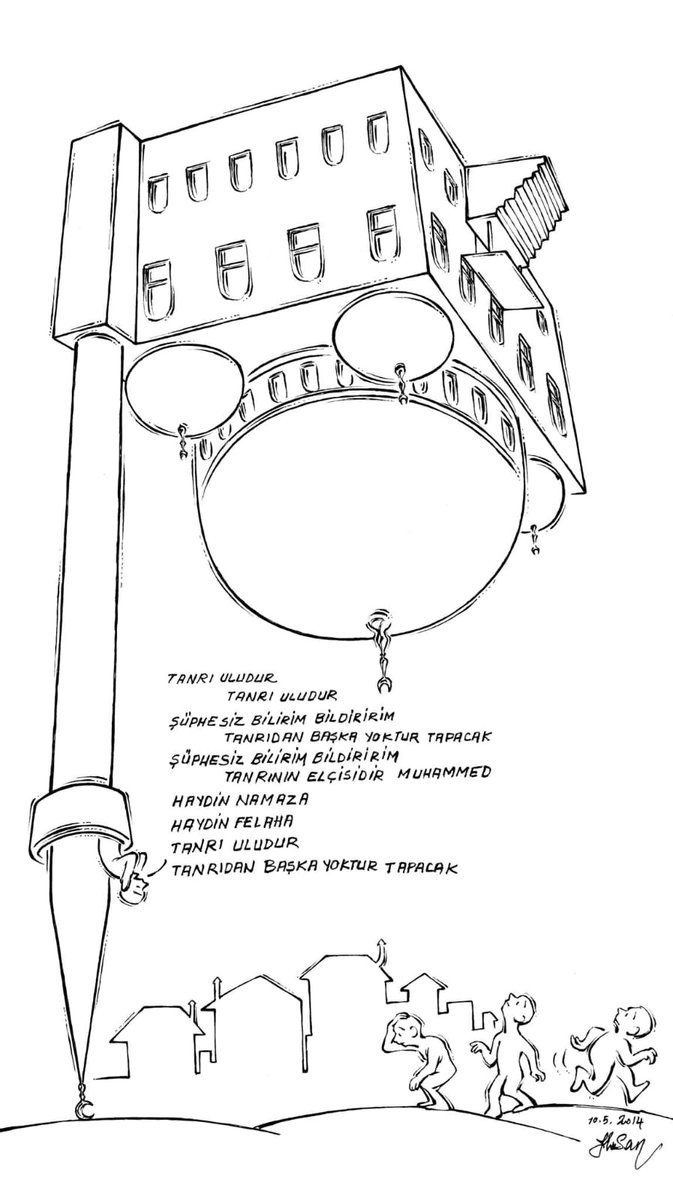 TANRI ULUDUR
TANRI ULUDUR
ŞÜPHESİZ BİLİRİM BİLDİRİRİM
TANRIDAN BAŞKA YOKTUR TAPACAK
ŞÜPHESİZ BİLİRİM BİLDİRİRİM
TANRININ ELÇİSİDİR MUHAMMED
HAYDİN NAMAZA
HAYDİN FELAHA
TANRI ULUDUR
TANRIDAN BAŞKA YOKTUR TAPACAK
10.5.2014